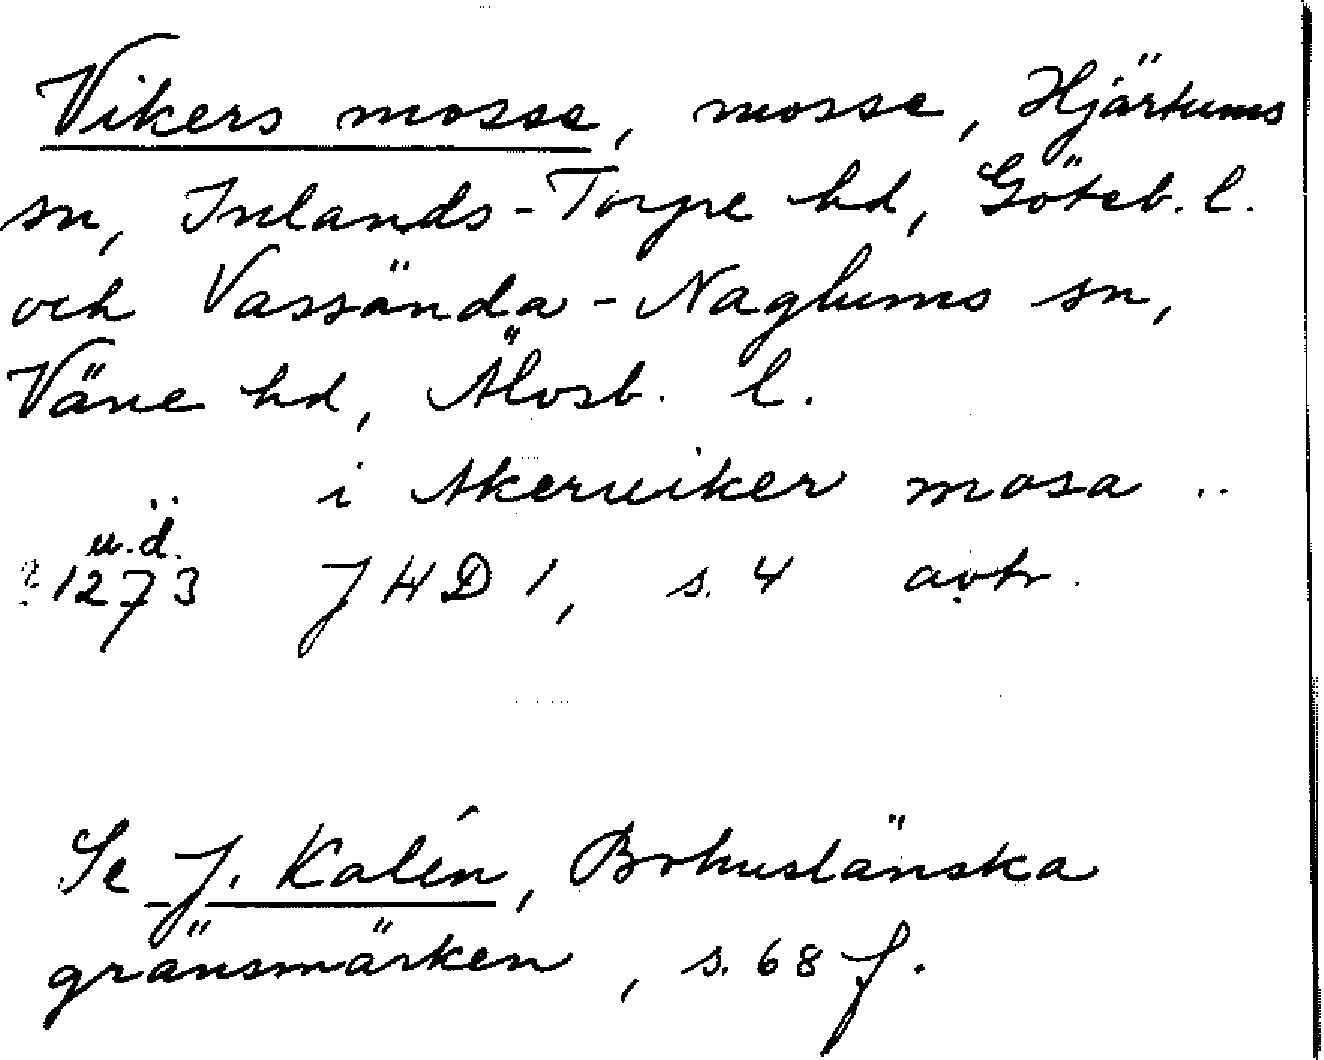 Vikers mosse, mosse, Hjärtums
sn, Inlands-Torpe hd, Göteb. l.
och Vassända-Naglums sn,
Väne hd, Älvsb. l.
.. i Akeruiker mosa ..
u.d.
? 1273 JHD 1, s. 4 avtr.
Se J. Kalén, Bohuslänska
gränsmärken, s. 68 f.